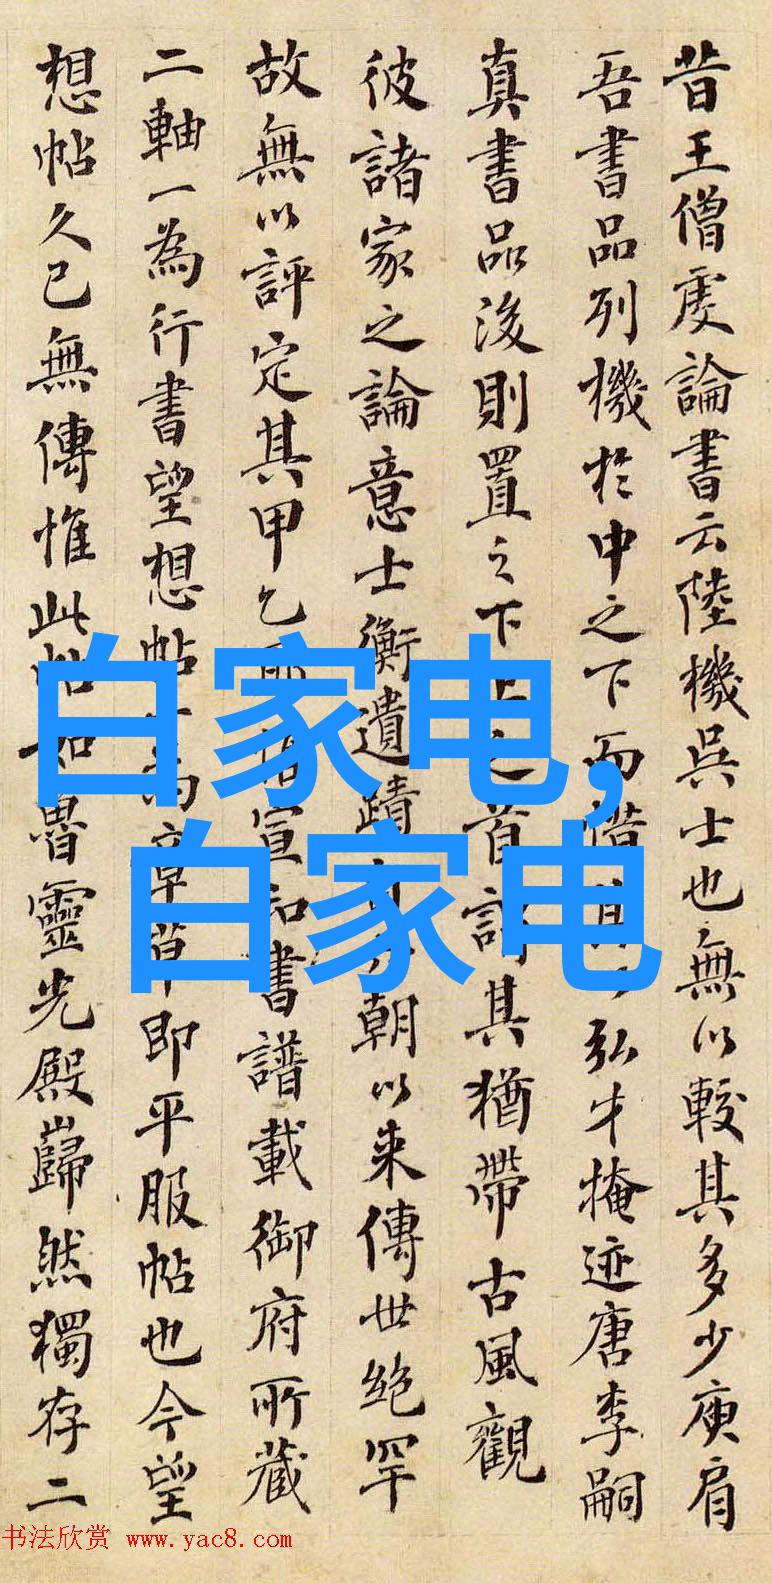 昔王僧虔論書云陸機吳士也無以較其多少庾肩
吾書品列機於中之下而惜其以弘才掩迹唐李嗣
真書品後則置之下上之首謂其猶帶古風觀
彼諸家之論意士衡遺蹟自六朝以来傳世絶罕
故無以評定其甲乙耶宣和書譜載御府所藏
二軸一為行書望想帖一為章草即平服帖也今望
想帖久已無傳惟此帖如魯靈光殿巋然獨存二
白家电,
白家电
书法欣赏 www.yac8.com